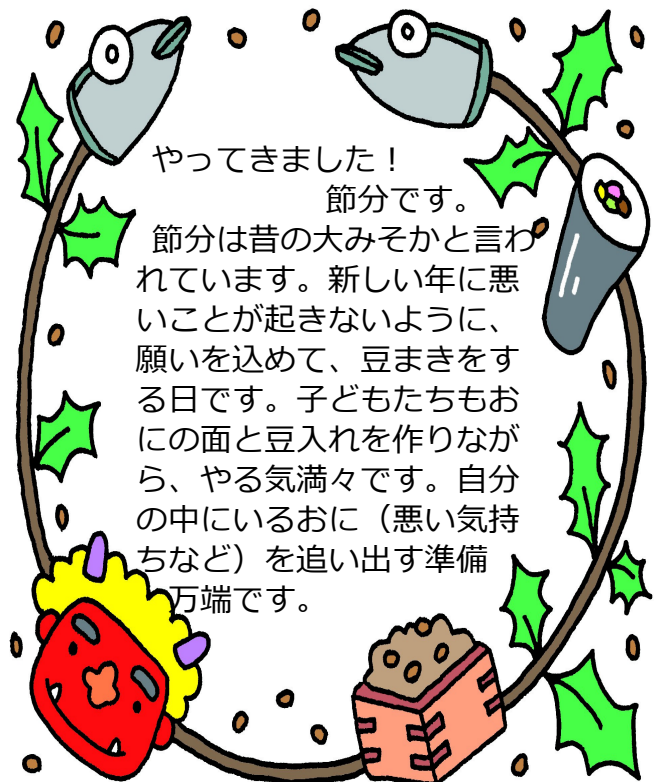 やってきました！
節分です。
節分は昔の大みそかと言わ
れています。新しい年に悪
いことが起きないように、
願いを込めて、豆まきをす
る日です。子どもたちもお
にの面と豆入れを作りなが
ら、やる気満々です。自分
の中にいるおに（悪い気持
ちなど）を追い出す準備
万端です。